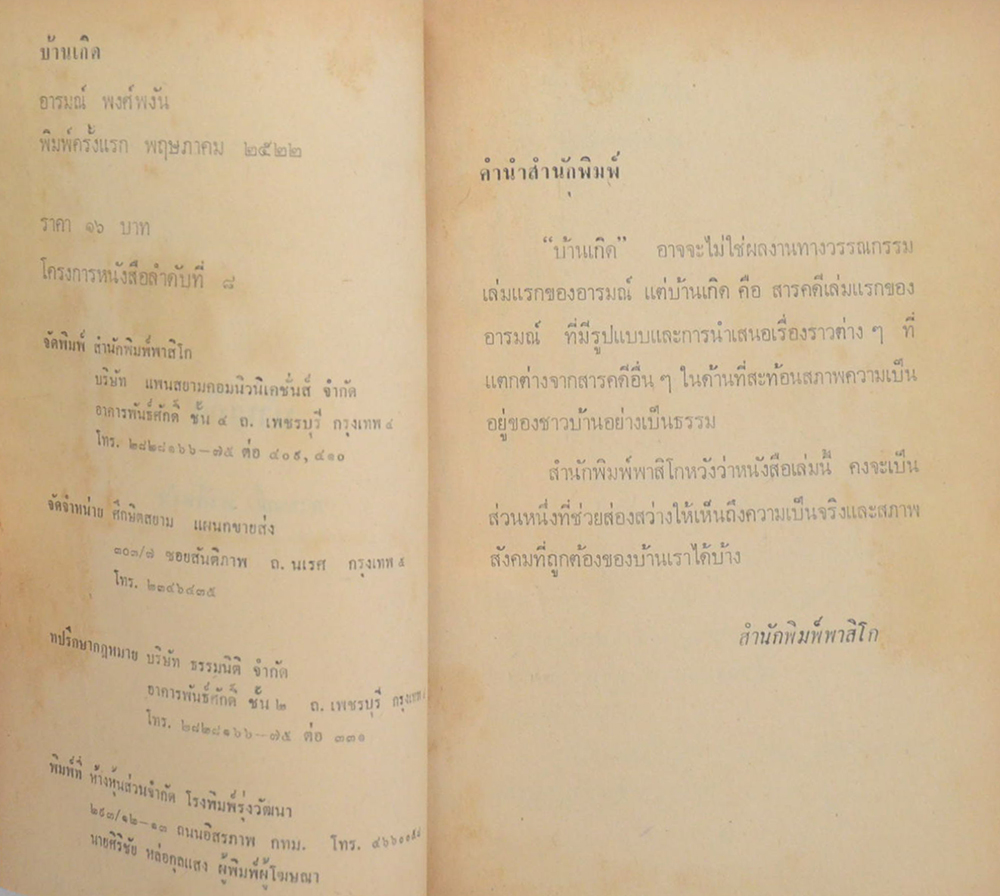 บ้านเกิด
อารมณ์ พงศ์พงัน
พิมพ์ครั้งแรก พฤษภาคม ๒๕๒๒
ราคา ๑๖ บาท
โครงการหนังสือลำดับที่ ๘
จัดพิมพ์ สำนักพิมพ์พาสิโก
บริษัท แพนสยามคอมนิวนิเคชั่นส์ จำกัด
อาคารพันธ์ศักดิ์ ชั้น ๔ ถ. เพชรบุรี กรุงเทพ ๔
โทร. ๒๘๒๘๑๖๖-๗๕ ต่อ ๔๐๙, ๔๑๐
จัดจำหน่าย ศึกษิตสยาม แผนกขายส่ง
๓๐๓/๗ ซอยสันติภาพ ถ. นเรศ กรุงเทพ ๕
โทร. ๒๓๔๖๔๓๕
ทปรึกษากฎหมาย บริษัท ธรรมนิติ จำกัด
อาคารพันธ์ศักดิ์ ชั้น ๒ ถ. เพชรบุรี กรุงเทพ
โทร. ๒๘๒๘๑๖๖-๗๕ ต่อ ๓๓๑
พิมพ์ที่ ห้างหุ้นส่วนจำกัด โรงพิมพ์รุ่งวัฒนา
๒๙๓/๑๒-๑๓ ถนนอิสรภาพ กทม. โทร.
นายศิริชัย หล่อกุลแสง ผู้พิมพ์ผู้โฆษณา
คำนำสำนักพิมพ์
“บ้านเกิด” อาจจะไม่ใช่ผลงานทางวรรณกรรม
เล่มแรกของอารมณ์ แต่บ้านเกิด คือ สารคดีเล่มแรกของ
อารมณ์ ที่มีรูปแบบและการนำเสนอเรื่องราวต่าง ๆ ที่
แตกต่างจากสารคดีอื่น ๆ ในด้านที่สะท้อนสภาพความเป็น
อยู่ของชาวบ้านอย่างเป็นธรรม
สำนักพิมพ์พาสิโกหวังว่าหนังสือเล่มนี้ คงจะเป็น
ส่วนหนึ่งที่ช่วยส่องสว่างให้เห็นถึงความเป็นจริงและสภาพ
สังคมที่ถูกต้องของบ้านเราได้บ้าง
สำนักพิมพ์พาสิโก